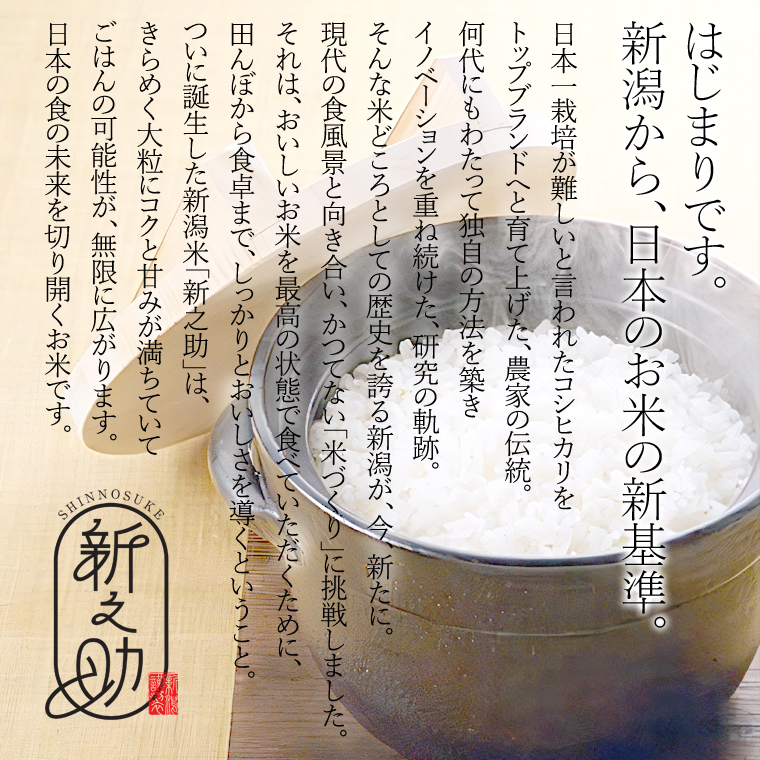 はじまりです。
新潟から、日本のお米の新基準。
日本一栽培が難しいと言われたコシヒカリを
トップブランドへと育て上げた、農家の伝統。
何代にもわたって独自の方法を築き
イノベーションを重ね続けた、研究の軌跡。
そんな米どころとしての歴史を誇る新潟が、今、新たに。
現代の食風景と向き合い、かつてない「米づくり」に挑戦しました。
それは、おいしいお米を最高の状態で食べていただくために、
田んぼから食卓まで、しっかりとおいしさを導くということ。
ついに誕生した新潟米「新之助」は、
きらめく大粒にコクと甘みが満ちていて
ごはんの可能性が、無限に広がります。
日本の食の未来を切り開くお米です。
SHINNOSUKE
新之助